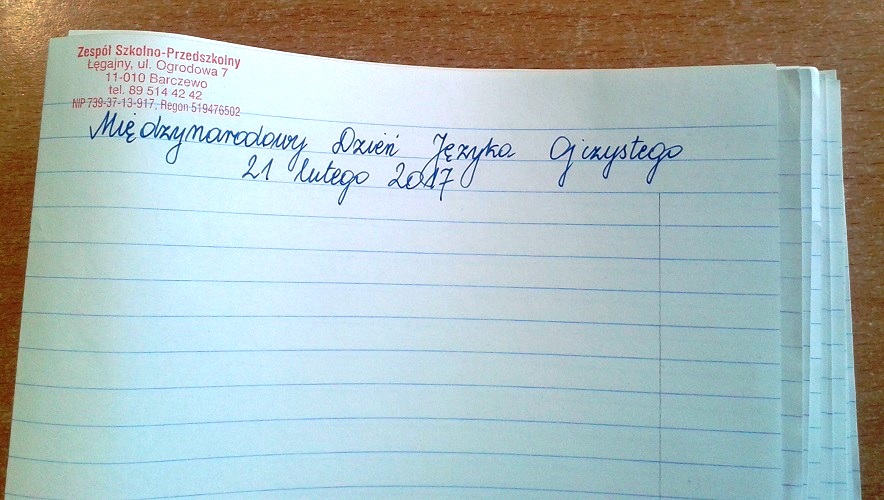 Zespół Szkolno-Przedszkolny
Łęgajny, ul. Ogrodowa 7
11-010 Barczewo
tel. 89 514 42 42
NIP 739-37-13-917, Regon 519476502
Międzynarodowy Dzień Języka Ojczystego
21 lutego 2017